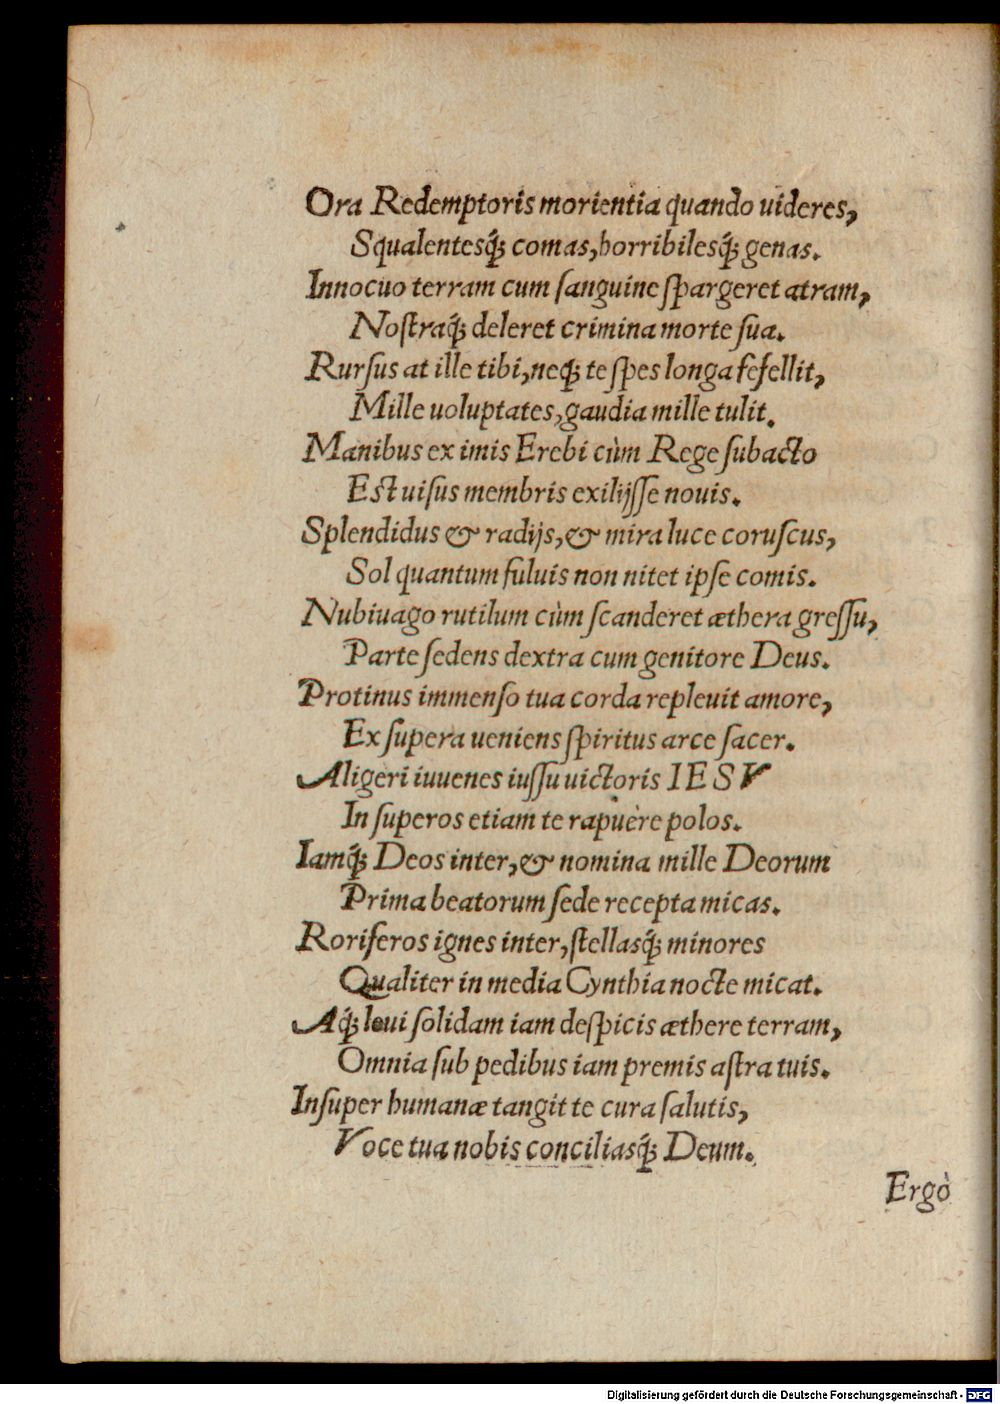 Ora Redemptoris morientia quando uideres,
Squalentesq́ꝫ comas, horribilesq́ꝫ genas.
Innocuo terram cum ſanguine ſpargeret atram,
Noſtraq́ꝫ deleret crimina morte ſua.
Rurſus at ille tibi, neq́ꝫ te ſpes longa fefellit,
Mille uoluptates, gaudia mille tulit.
Manibus ex imis Erebi cùm Rege ſubacto
Eſt uiſus membris exilijſſe nouis.
Splendidus & radijs, & mira luce coruſcus,
Sol quantum fuluis non nitet ipſe comis.
Nubiuago rutilum cùm ſcanderet æthera greſſu,
Parte ſedens dextra cum genitore Deus.
Protinus immenſo tua corda repleuit amore,
Ex ſupera ueniens ſpiritus arce ſacer.
Aligeri iuuenes iuſſu uictoris IESV
In ſuperos etiam te rapuère polos.
Iamq́ꝫ Deos inter, & nomina mille Deorum
Prima beatorum ſede recepta micas.
Roriferos ignes inter, ſtellasq́ꝫ minores
Qualiter in media Cynthia nocte micat.
Aq́ꝫ leui ſolidam iam deſpicis æthere terram,
Omnia ſub pedibus iam premis aſtra tuis.
Inſuper humanæ tangit te cura ſalutis,
Voce tua nobis conciliasq́ꝫ Deum.
Ergò
Digitalisierung gefördert durch die Deutsche Forschungsgemeinschaft - DFG